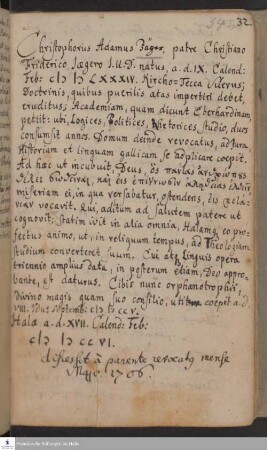 32.
Christophorus Adamus Jäger, patre Christiano
Friderico Jægero J.U.D. natus, a.d. IX. Calend:
Feb: cIɔ Iɔ LXXXIV. Kircho-Tecca
Doctrinis, quibus puerilis ætas impertiri debet,
eruditus; Academiam, quam dicunt Eberhardinam,
petiit: ubi, Logices, Politices, Rhetorices, studio, duos
consumsit annos. Domum deinde revocatus, ad Jura
Historiam et linguam gallicam se applicare coepit.
Ad hæc ut incubuit, Deus,
miseriam ei, in qua versabatur, ostendens,
vocavit. Qui, aditum ad salutem patere ut
cognovit, statim ivit in alia omnia, Halamq; eo pro-
fectus animo, ut, in reliquum tempus, ad Theologiam
studium converteret suum. Cui atq; Linguis opera
triennis amplius data, in posterum etiam, Deo appro-
bante, et daturus. Cibis nunc orphanotrophii,
divino magis quam suo consilio, uti coepit a.d.
VIII. Idus Septemb: cIɔ Iɔ cc V.
Hala a.d. XVII. Calend: Feb:
cIɔ Iɔ cc VI.
discessit à parente revocatus mense
Majo. 1706.